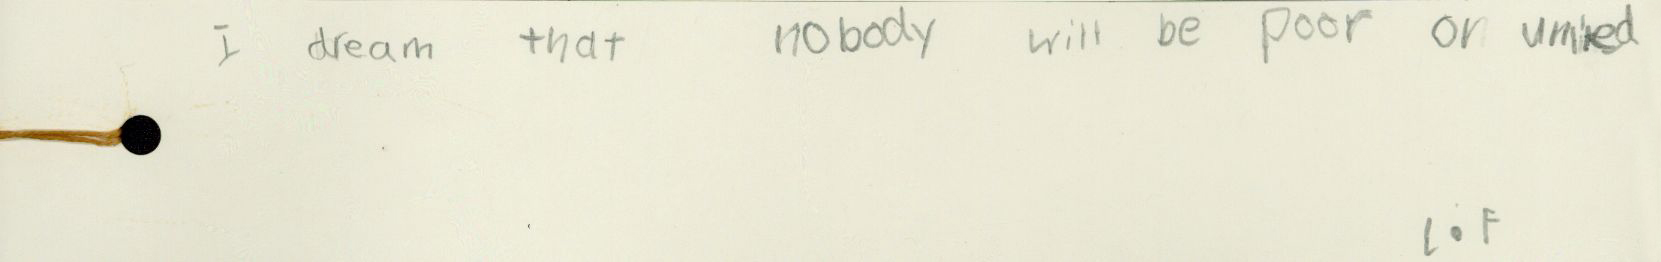 I dream that nobody will be poor or
L.F